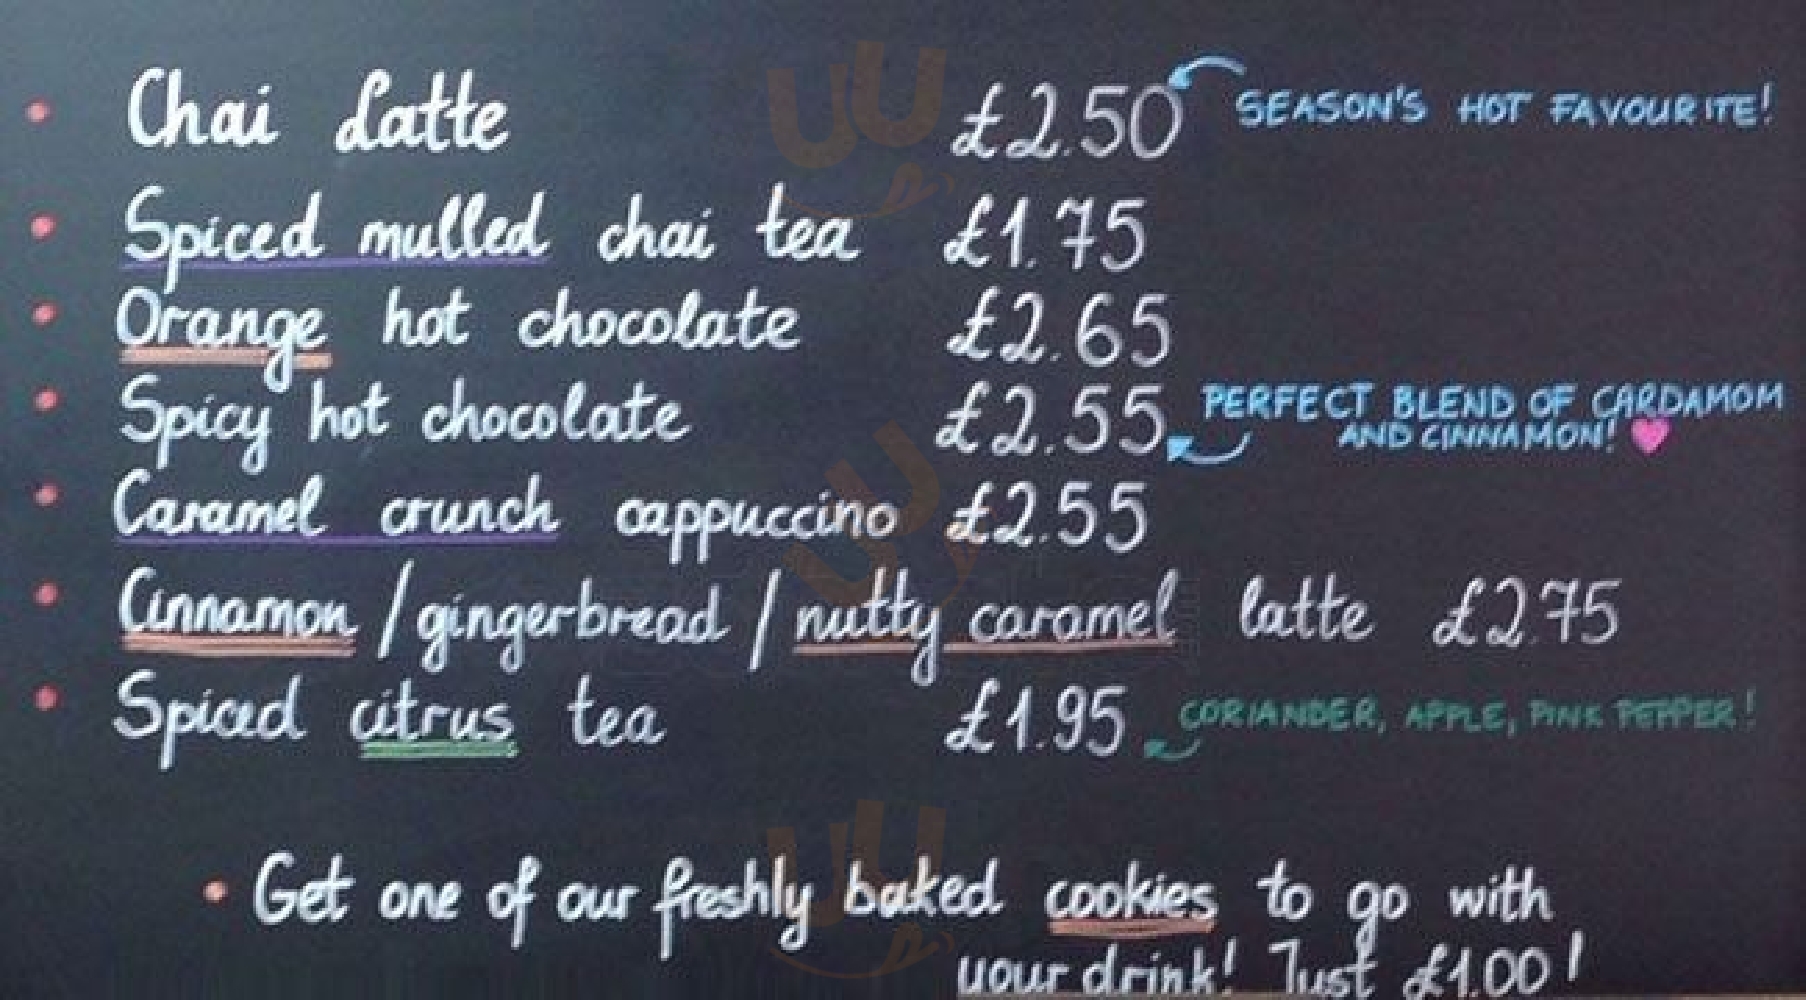 • Chai Latte £2.50 SEASON'S HOT FAVOURITE!
• Spiced mulled chai tea £1.75
• Orange hot chocolate £2.65
• Spicy hot chocolate £2.55 PERFECT BLEND OF CARDAMOM
AND CINNAMON!
• Caramel crunch cappuccino £2.55
• Cinnamon / gingerbread / nutty caramel latte £2.75
• Spiced citrus tea £1.95 CORIANDER, APPLE, PINK PEPPER!
• Get one of our freshly baked cookies to go with
your drink! Just £1.00!